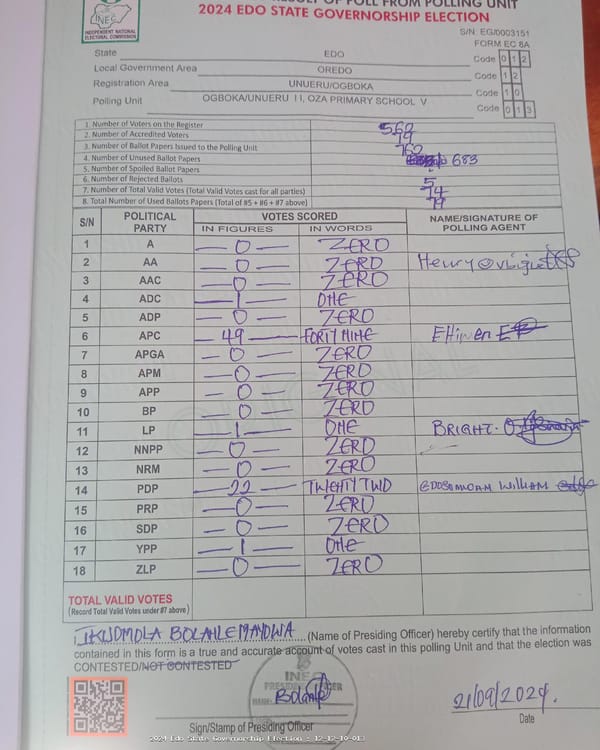 RESULT OF POLL FROM POLLING UNIT
2024 EDO STATE GOVERNORSHIP ELECTION
INEC
INDEPENDENT NATIONAL ELECTORAL COMMISSION
S/N: EG/0003151
FORM EC 8A
State EDO Code 0 1 2
Local Government Area OREDO Code 1 2
Registration Area UNUERU/OGBOKA Code 1 0
Polling Unit OGBOKA/UNUERU 11, OZA PRIMARY SCHOOL V Code 0 1 3
1. Number of Voters on the Register 560
2. Number of Accredited Voters 79
3. Number of Ballot Papers Issued to the Polling Unit 762
4. Number of Unused Ballot Papers 683
5. Number of Spoiled Ballot Papers
6. Number of Rejected Ballots 5
7. Number of Total Valid Votes (Total Valid Votes cast for all parties) 74
8. Total Number of Used Ballots Papers (Total of #5 + #6 + #7 above) 79
S/N POLITICAL PARTY VOTES SCORED NAME/SIGNATURE OF POLLING AGENT
IN FIGURES IN WORDS
1 A 0 ZERO
2 AA 0 ZERO Henry
3 AAC 0 ZERO
4 ADC 1 ONE
5 ADP 0 ZERO
6 APC 49 FORTY NINE EHinen
7 APGA 0 ZERO
8 APM 0 ZERO
9 APP 0 ZERO
10 BP 0 ZERO
11 LP 1 ONE BRIGHT. O
12 NNPP 0 ZERO
13 NRM 0 ZERO
14 PDP 22 TWENTY TWO WILLIAM
15 PRP 0 ZERO
16 SDP 0 ZERO
17 YPP 1 ONE
18 ZLP 0 ZERO
TOTAL VALID VOTES
(Record Total Valid Votes under #7 above)
IKUOMOLA BOLANLE MAYOWA (Name of Presiding Officer) hereby certify that the information
contained in this form is a true and accurate account of votes cast in this polling Unit and that the election was
CONTESTED/NOT CONTESTED
INEC
PRESIDING OFFICER
Sign/Stamp of Presiding Officer
21/09/2024.
Date
2024 Edo State Governorship Election - 12-12-10-013